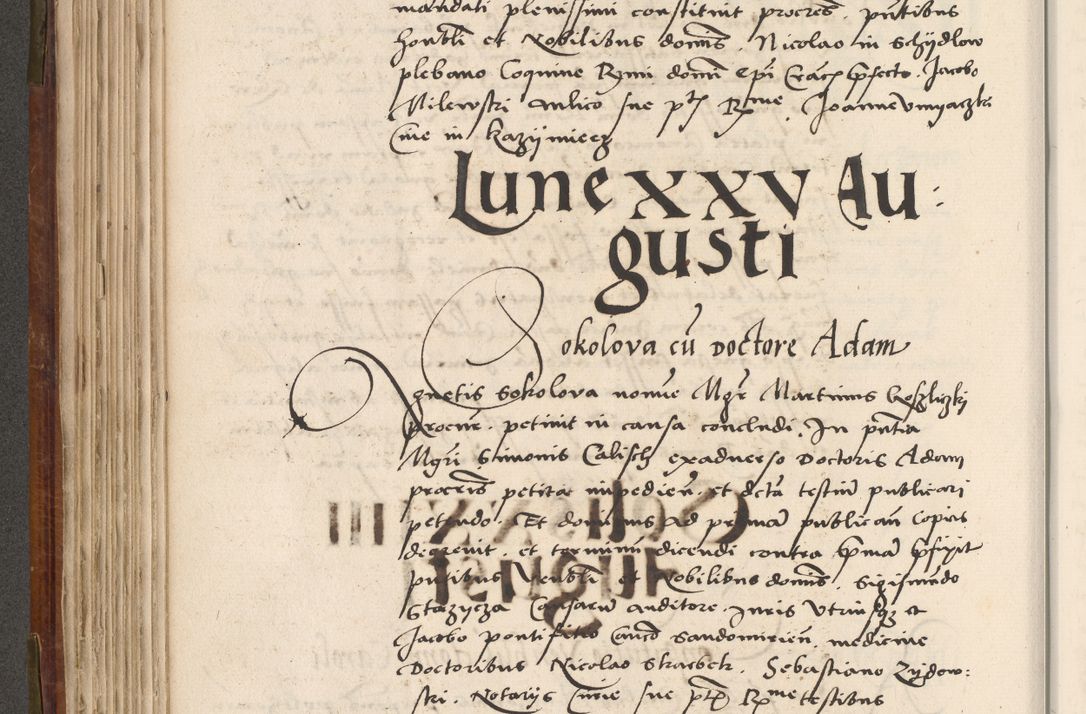 mandati plenissimi constituit procres. pntibus
honbli et Nobilibus domis. Nicolao in Schÿdlow
plebano Coquine Rmi domi epi Crac pfecto. Jacobo
Milewski aulico sue pte Rme. Joanne
in kazÿmierz
Lune XXV Au:
gusti
Sokolova cu Doctore Adam
Agnetis Sokolova nomie Mgr Martinus
procur. petiuit in causa concludi. In pntia
Mgri Simonis Calisch exaduerso Doctoris Adam
procris petita impedien. et dcta testiu publicari
petendo. Et dominus ad prima publican copias
decreuit. et terminu dicendi contra pma pfixit
pntibus Venbli et Nobilibus domis. Sigismudo
Stazycza Causaru auditore. Iuris Utriusq et
Jacobo pontificio Cano Sandomirien. medicine
Doctoribus Nicolao Skarbek. Sebastiano Zydow:
ski. Notarijs Curie sue pte Rme testibus